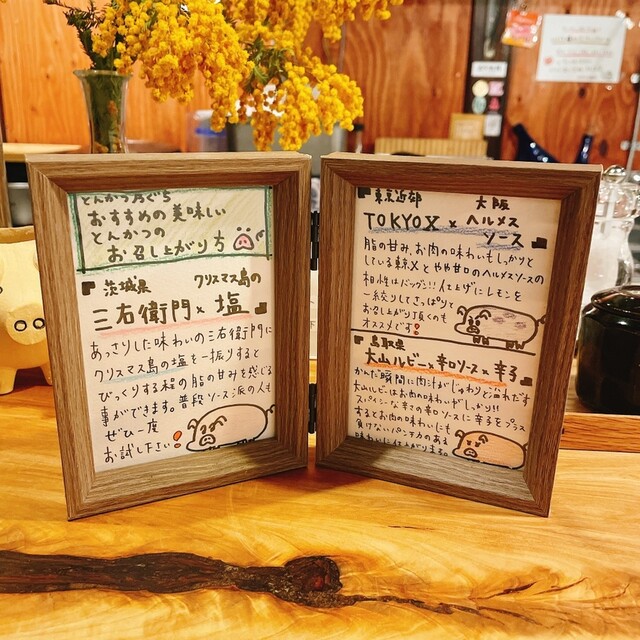 とんかつ方ぐち
おすすめの美味しい
とんかつの
お召し上がり方
茨城県 クリスマス島の
三右衛門×塩
あっさりした味わいの三右衛門に
クリスマス島の塩を一振りすると
びっくりする程の脂の甘みを感じる
事ができます。普段ソース派の人も
ぜひ一度
お試し下さい!
東京近郊 大阪
TOKYO X × ヘルメス
ソース
脂の甘み、お肉の味わいもしっかりと
している東京Xとやや甘口のヘルメスソースの
相性はバツグン!!仕上げにレモンを
一絞りしてさっぱりと
お召し上がり頂くのも
オススメです!
鳥取県
大山ルビー×辛口ソース×辛子
かむ瞬間に肉汁がじゅわりと溢れだす
大山ルビーはお肉の味わいがしっかり!!
スパイシーな辛口ソースに辛子をプラス
するとお肉の味わいにも
負けないパンチ力のある
味わいに仕上がります。